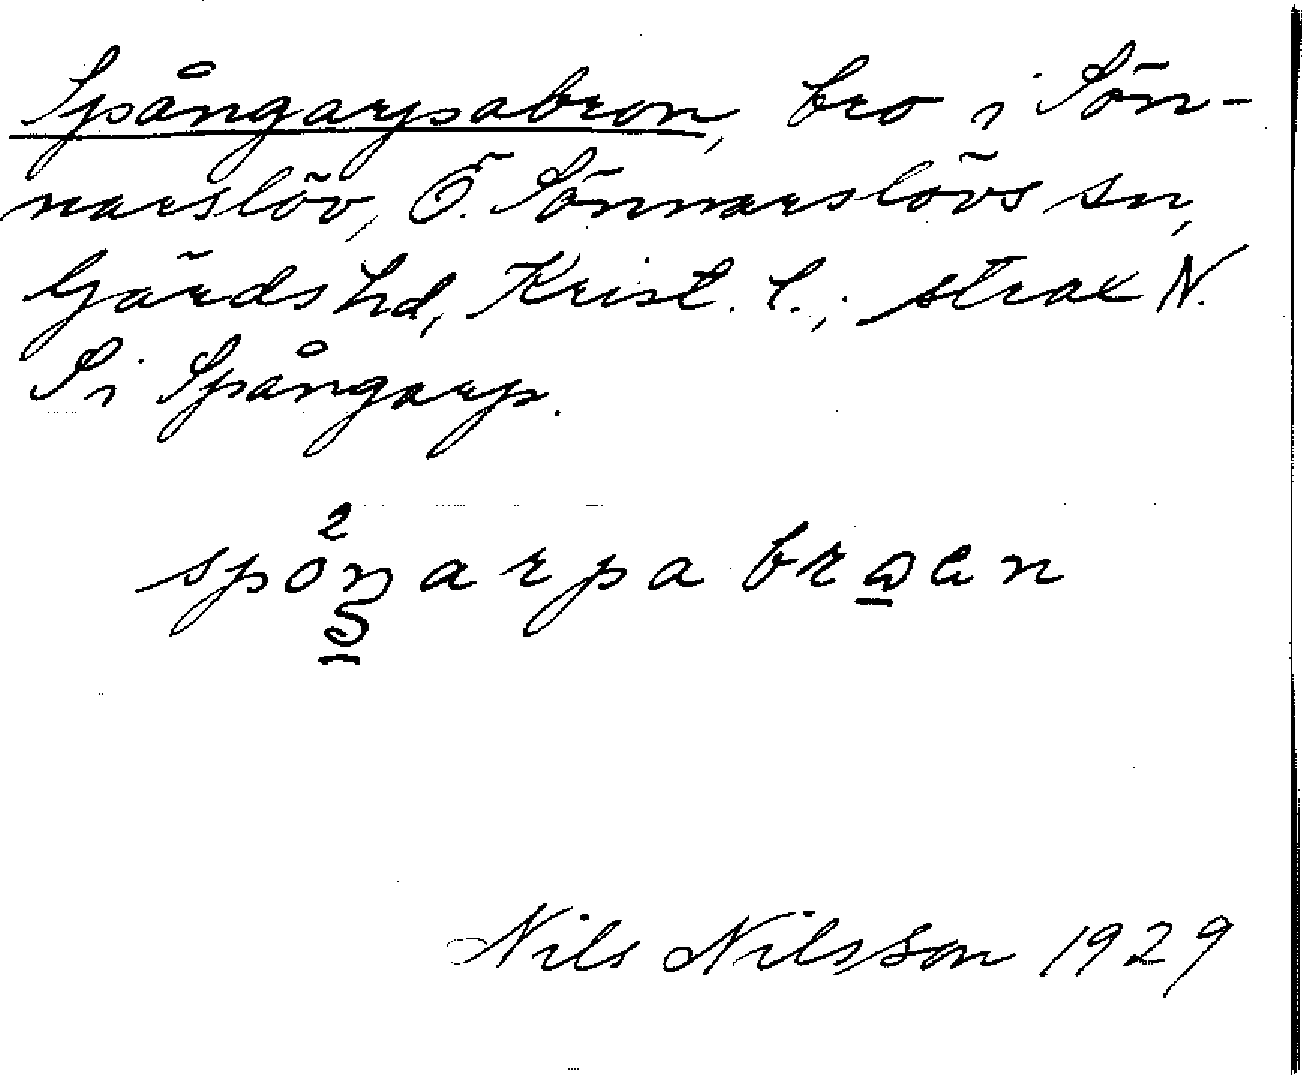 Spångarpsabron, bro i Sön-
narslöv, Ö. Sönnarslövs sn,
Gärds hd, Krist. l.; strax N.
S i Spångarp.
2
spoŋarpa bro̲en
S
Nils Nilsson 1929